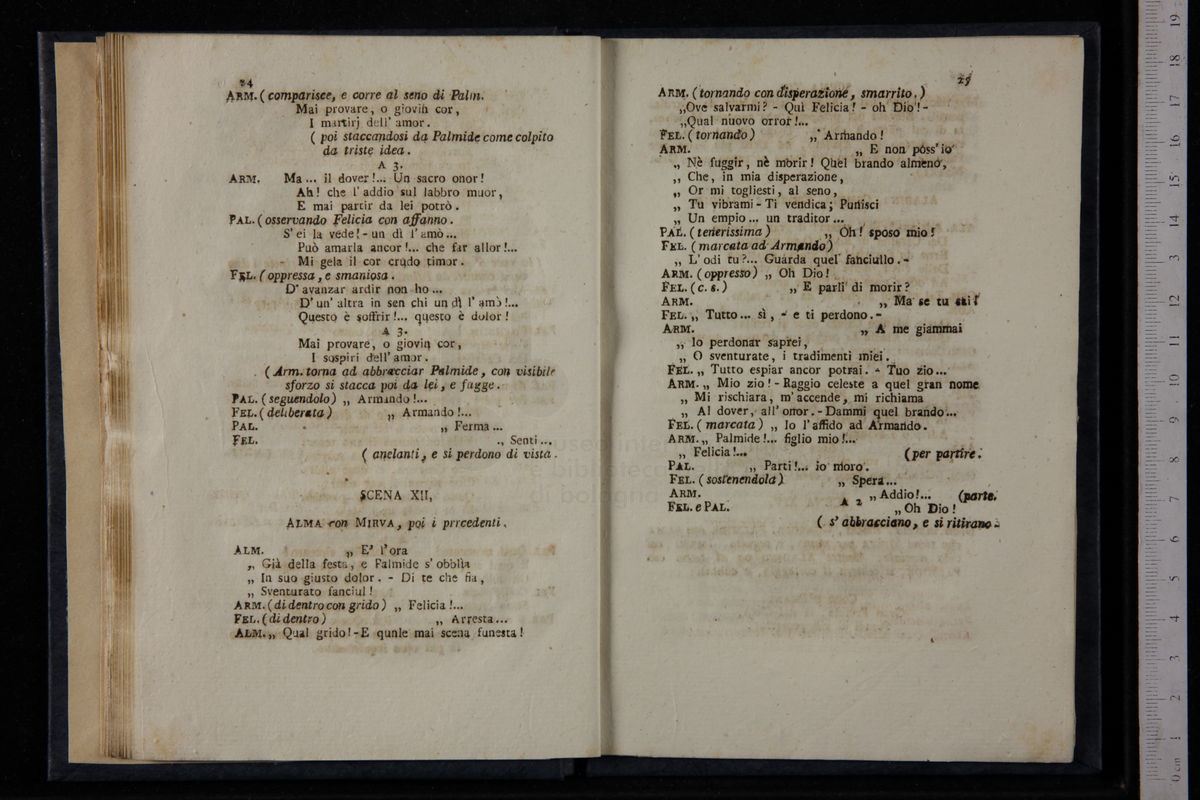 24
ARM. ( comparisce, e corre al seno di Palm.
Mai provare, o giovin cor,
I martirj dell' amor.
( poi staccandosi da Palmide come colpito
da triste idea.
A 3.
ARM. Ma ... il dover !... Un sacro onor !
Ah! che l' addio sul labbro muor,
E mai partir da lei potrò.
PAL. ( osservando Felicia con affanno.
S' ei la vede! - un dì l' amò ...
Può amarla ancor !... che far allor !...
Mi gela il cor crudo timor.
FEL. ( oppressa, e smaniosa.
D' avanzar ardir non ho ...
D' un' altra in sen chi un dì l' amò !...
Questo è soffrir !... questo è dolor !
A 3.
Mai provare, o giovin cor,
I sospiri dell' amor.
( Arm. torna ad abbracciar Palmide, con visibile
sforzo si stacca poi da lei, e fugge.
PAL. ( seguendolo ) „ Armando !...
FEL. ( deliberata ) „ Armando !...
PAL. „ Ferma ...
FEL. „ Senti ...
( anelanti, e si perdono di vista.
SCENA XII,
ALMA con MIRVA, poi i prrcedenti.
ALM. „ E' l' ora
„ Già della festa, e Palmide s' obblìa
„ In suo giusto dolor. - Di te che fia,
„ Sventurato fanciul !
ARM. ( di dentro con grido ) „ Felicia !...
FEL. ( di dentro ) „ Arresta ...
ALM. „ Qual grido! - E qunle mai scena funesta !
25
ARM. ( tornando con disperazione, smarrito. )
„ Ove salvarmi ? - Qui Felicia ! - oh Dio ! -
„ Qual nuovo orror !...
FEL. ( tornando ) „ Armando !
ARM. „ E non poss' io
„ Nè fuggir, nè morir ! Quel brando almeno,
„ Che, in mia disperazione,
„ Or mi togliesti, al seno,
„ Tu vibrami - Ti vendica; Punisci
„ Un empio ... un traditor ...
PAL. ( tenerissima ) „ Oh ! sposo mio !
FEL. ( marcata ad Armando )
„ L' odi tu ?... Guarda quel fanciullo. -
ARM. ( oppresso ) „ Oh Dio !
FEL. ( c. s. ) „ E parli di morir ?
ARM. „ Ma se tu sai !
FEL. „ Tutto ... sì, - e ti perdono. -
ARM. „ A me giammai
„ Io perdonar saprei,
„ O sventurate, i tradimenti miei.
FEL. „ Tutto espiar ancor potrai. - Tuo zio ...
ARM. „ Mio zio ! - Raggio celeste a quel gran nome
„ Mi rischiara, m' accende, mi richiama
„ Al dover, all' onor. - Dammi quel brando ...
FEL. ( marcata ) „ Io l' affido ad Armando.
ARM. „ Palmide !... figlio mio !...
„ Felicia !... (per partire.
PAL. „ Parti !... io moro.
FEL. ( sostenendola ) „ Spera ...
ARM. „ Addio !... (parte.
A 2
FEL. e PAL. „ Oh Dio !
( s' abbracciano, e si ritirano.